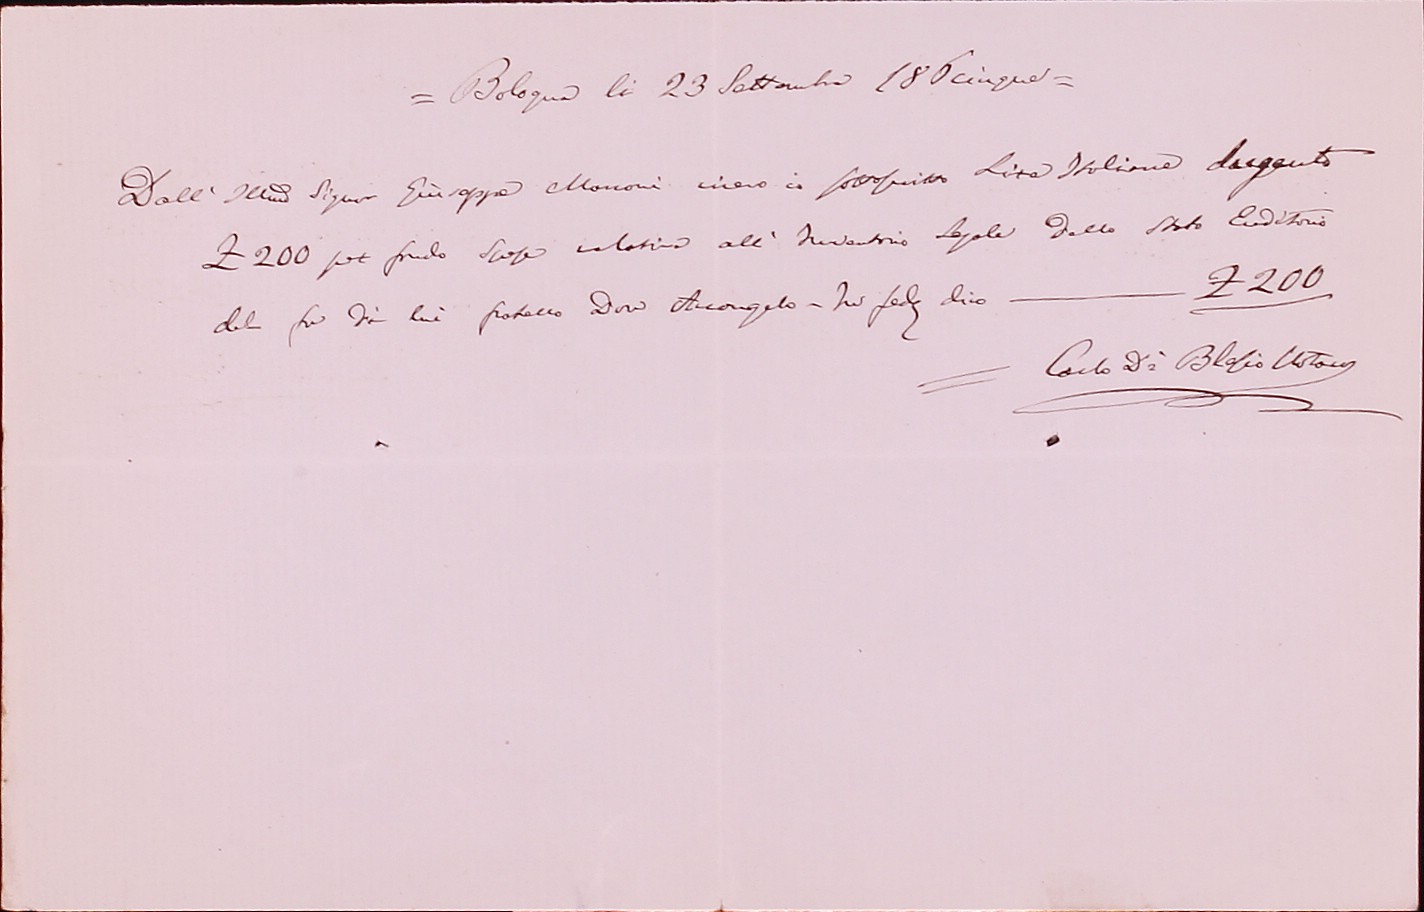 = Bologna li 23 Settembre 186cinque =
Dall' Illmo Signor Giuseppe Marconi ricevo io sottoscritto Lire Italiane d'argento
£ 200 per fondo spese relative all' Inventario Legale dello Stato Ereditario
del fu di lui fratello Don Arcangelo - In fede dico £ 200
= Carlo Di Blasio Notaro